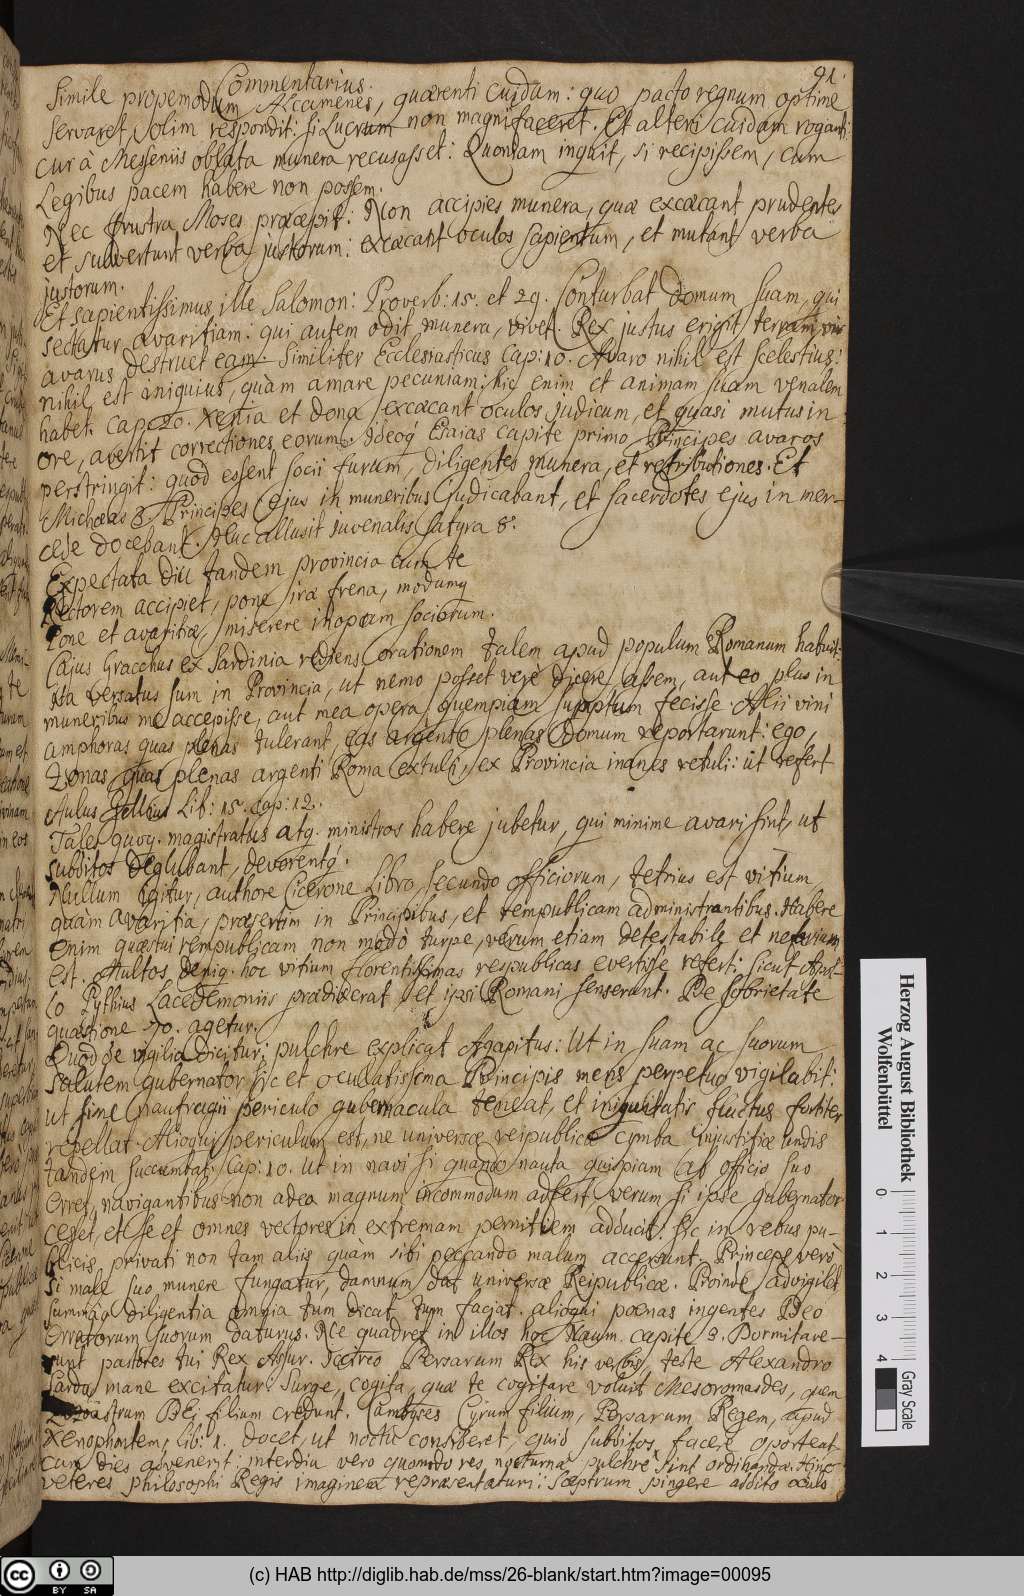 91.
Commentarius.
Simile propemodum Alcamenes, quærenti cuidam: quo pacto regnum optime
servaret, olim respondit: si Lucrum non magnifaceret. Et alteri cuidam roganti:
cur à Messeniis oblata munera recusasset: Quoniam inquit, si recipissem, cum
Legibus pacem habere non possem.
Nec frustra Moses præcepit: Non accipies munera, quæ excæcant prudentes
et subvertunt verba justorum: excæcant oculos sapientum, et mutant verba
justorum.
Et sapientissimus ille Salomon: Proverb: 15. et 29. Conturbat domum suam, qui
sectatur avaritiam: qui autem odit munera, vivet. Rex justus erigit terram, vir
avarus destruet eam. Similiter Ecclesiasticus Cap: 10. Avaro nihil est scelestius:
nihil est iniquius, quàm amare pecuniam: hic enim et animam suam venalem
habet. Cap. 20. Xenia et dona excæcant oculos judicum, et quasi mutus in
ore, avertit correctiones eorum. Ideoq́ Esaias capite primo, Principes avaros
perstringit: quod essent socii furum, diligentes munera, et retributiones. Et
Michæas 3. Principes ejus in muneribus judicabant, et sacerdotes ejus in mer-
cede docebant. Huc allusit Juvenalis Satyra 8.
Expectata diu tandem provincia cum te
Rectorem accipiet, pone iræ frena, modumq
Pone et avaritiæ, miserere inopum sociorum.
Cajus Gracchus ex Sardinia rediens orationem talem apud populum Romanum habuit.
Ita versatus sum in Provincia, ut nemo posset verè dicere assem, aut eo plus in
muneribus me accepisse, aut mea opera quempiam sumptum fecisse. Alii vini
amphoras quas plenas tulerant, eas argento plenas domum reportarunt: ego,
zonas, quas plenas argenti Roma extuli, ex Provincia inanes retuli: ut refert
Aulus Gellius Lib: 15. cap: 12.
Tales quoq. magistratus atq. ministros habere jubetur, qui minime avari sint, ut
subditos deglubant, devorentq́.
Nullum igitur, authore Cicerone Libro secundo officiorum, tetrius est vitium,
quàm avaritia, præsertim in Principibus, et rempublicam administrantibus. Habere
enim quæstui rempublicam non modò turpe, verum etiam detestabile et nefarium
est. Multos deniq. hoc vitium florentissimas respublicas evertisse referti, sicut Apol-
lo Pythius Lacedemoniis prædixerat et ipsi Romani senserunt. De sobrietate
quæstione 70. agetur.
Quod de vigilia dicitur: pulchre explicat Agapitus: Ut in suam ac suorum
salutem gubernator sic et oculatissima Principis mens perpetuo vigilabit:
ut sine naufragii periculo gubernacula teneat, et iniquitatis fluctus fortiter
repellat. Alioqui periculum est, ne universæ reipublicæ cymba injustitiæ undis
tandem succumbat. Cap: 10. Ut in navi si quando nauta quispiam ab officio suo
erret, navigantibus non adeo magnum incommodum adfert, verum si ipse gubernator
cesset, et se et omnes vectores in extremam pernitiem adducit: sic in rebus pu-
blicis, privati non tam aliis quàm sibi peccando malum accersunt. Princeps verò
si male suo munere fungatur, damnum dat universæ Reipublicæ. Proinde advigilet
summâq diligentia omnia tum dicat tum faciat. alioqui pœnas ingentes Deo
erratorum suorum daturus. Ne quadret in illos hoc Naum. capite 3. Dormitave-
runt pastores tui Rex Assur. Ideo Persarum Rex his verbis, teste Alexandro
Sardo, mane excitatur. Surge, cogita, quæ te cogitare voluit Mesoromasdes, quem
Zoroastrum Dei filium credunt. Cambyses Cyrum filium, Persarum Regem, apud
Xenophontem, Lib: 1. docet, ut noctu consideret, quid subditos facere oporteat
cum dies advenerit: interdiu vero quomodo res nocturnæ pulchre sint ordinandæ. Hinc
veteres philosophi Regis imaginem repræsentaturi: Sceptrum pingere addito oculo
Herzog August Bibliothek
Wolfenbüttel
0 1 2 3 4
Gray Scale
cc BY SA
(c) HAB http://diglib.hab.de/mss/26-blank/start.htm?image=00095